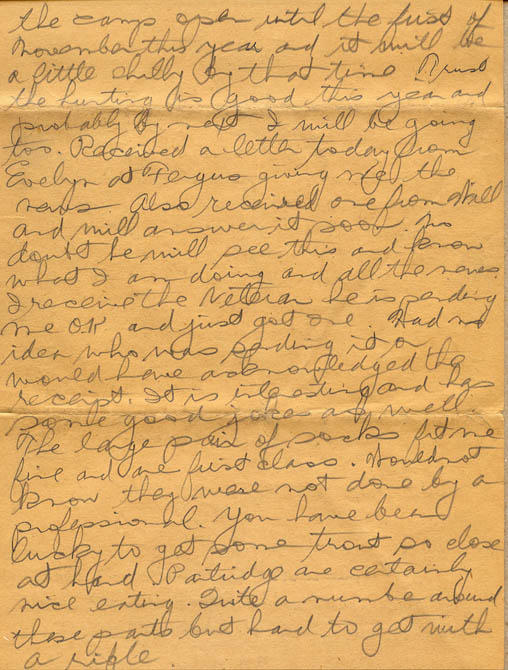 the camp open until the first of
November this year and it will be
a little chilly by that time. Trust
the hunting is good this year and
probably by next I will be going
too. Received a letter today from
Evelyn at Fergus giving me the
news. Also received one from Will
and will answer it soon. No
doubt he will see this and know
what I am doing and all the news.
I receive the Veteran he is sending
me OK and just got one. Had no
idea who was sending it or
would have acknowledged the
receipt. It is interesting and has
some good jokes as well.
The large pair of socks fit me
fine and are first class. Would not
know they were not done by a
professional. You have been
lucky to get some trout so close
at hand Partridge are certainly
nice eating. Quite a number around
these parts but hard to get with
a rifle.